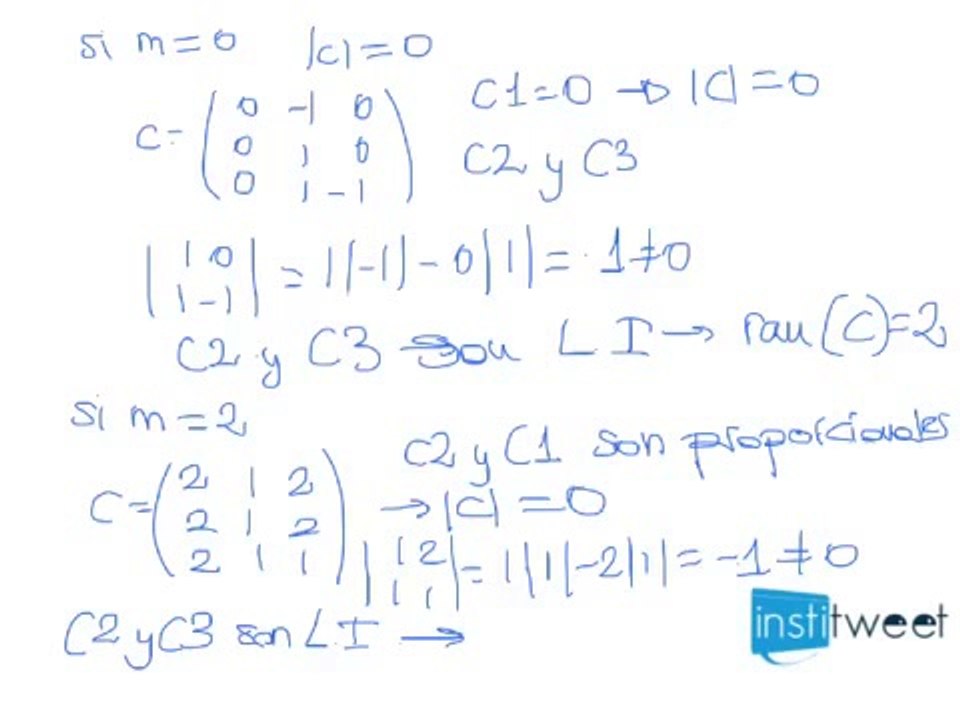 si m=0 |C|=0
C= ( 0 -1 0
0 1 0
0 1 -1 )
C1=0 → |C|=0
C2 y C3
| 1 0
1 -1 | = 1|-1| - 0|1| = -1≠0
C2 y C3 son LI → ran(C)=2
si m=2
C2 y C1 son proporcionales
C= ( 2 1 2
2 1 2
2 1 1 )
→ |C|=0
| 1 2
1 1 | = 1|1|-2|1| = -1≠0
C2 y C3 son LI →
institweet